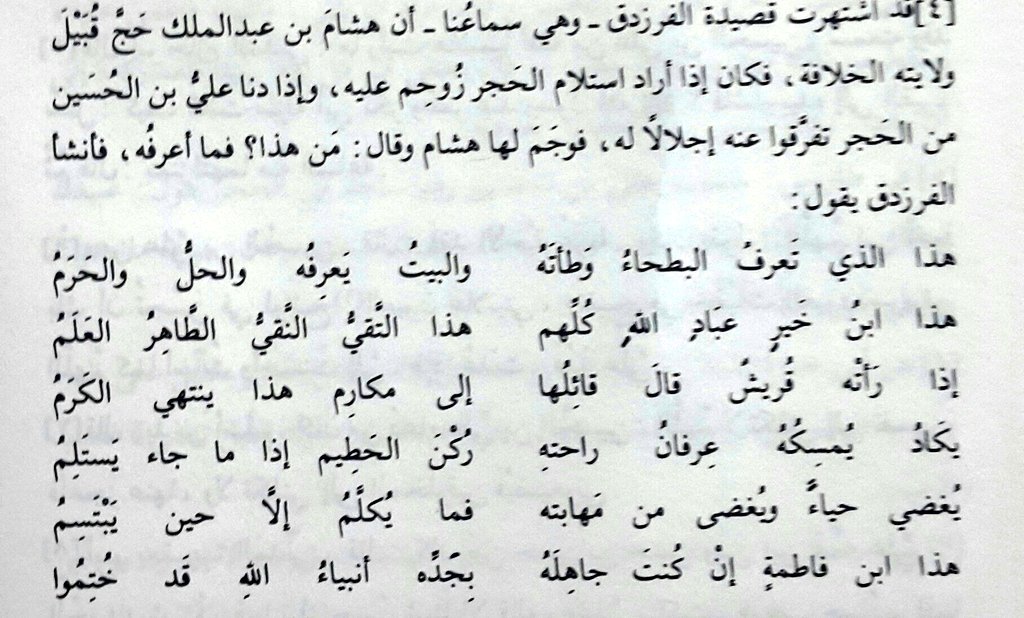 [٤] قد اشتهرت قصيدة الفرزدق ـ وهي سماعُنا ـ أن هشامَ بن عبدالملك حَجَّ قُبَيْلَ
ولايته الخلافة، فكان إذا أراد استلام الحَجر زُوحِم عليه، وإذا دنا عليُّ بن الحُسَين
من الحَجر تفرَّقوا عنه إجلالًا له، فوجَمَ لها هشام وقال: مَن هذا؟ فما أعرفُه، فأنشأ
الفرزدق يقول:
هذا الذي تَعرفُ البطحاءُ وَطأتَهُ والبيتُ يَعرفُه والحلُّ والحَرَمُ
هذا ابنُ خَيرِ عبَادِ اللهِ كُلِّهم هذا التَّقيُّ النَّقيُّ الطَّاهِرُ العَلَمُ
إذا رَأتْه قُريشٌ قالَ قائِلُها إلى مكَارِم هذا ينتهي الكَرَمُ
يكَادُ يُمسِكُهُ عِرفانُ راحتهِ رُكْنَ الحَطِيم إذا ما جاء يَستلِمُ
يُغضي حياءً ويُغضى من مَهابته فما يُكلَّمُ إلَّا حين يَبْتسِمُ
هذا ابن فاطمةٍ إنْ كُنتَ جاهِلَهُ بِجَدِّه أنبياءُ اللهِ قَد خُتِمُوا